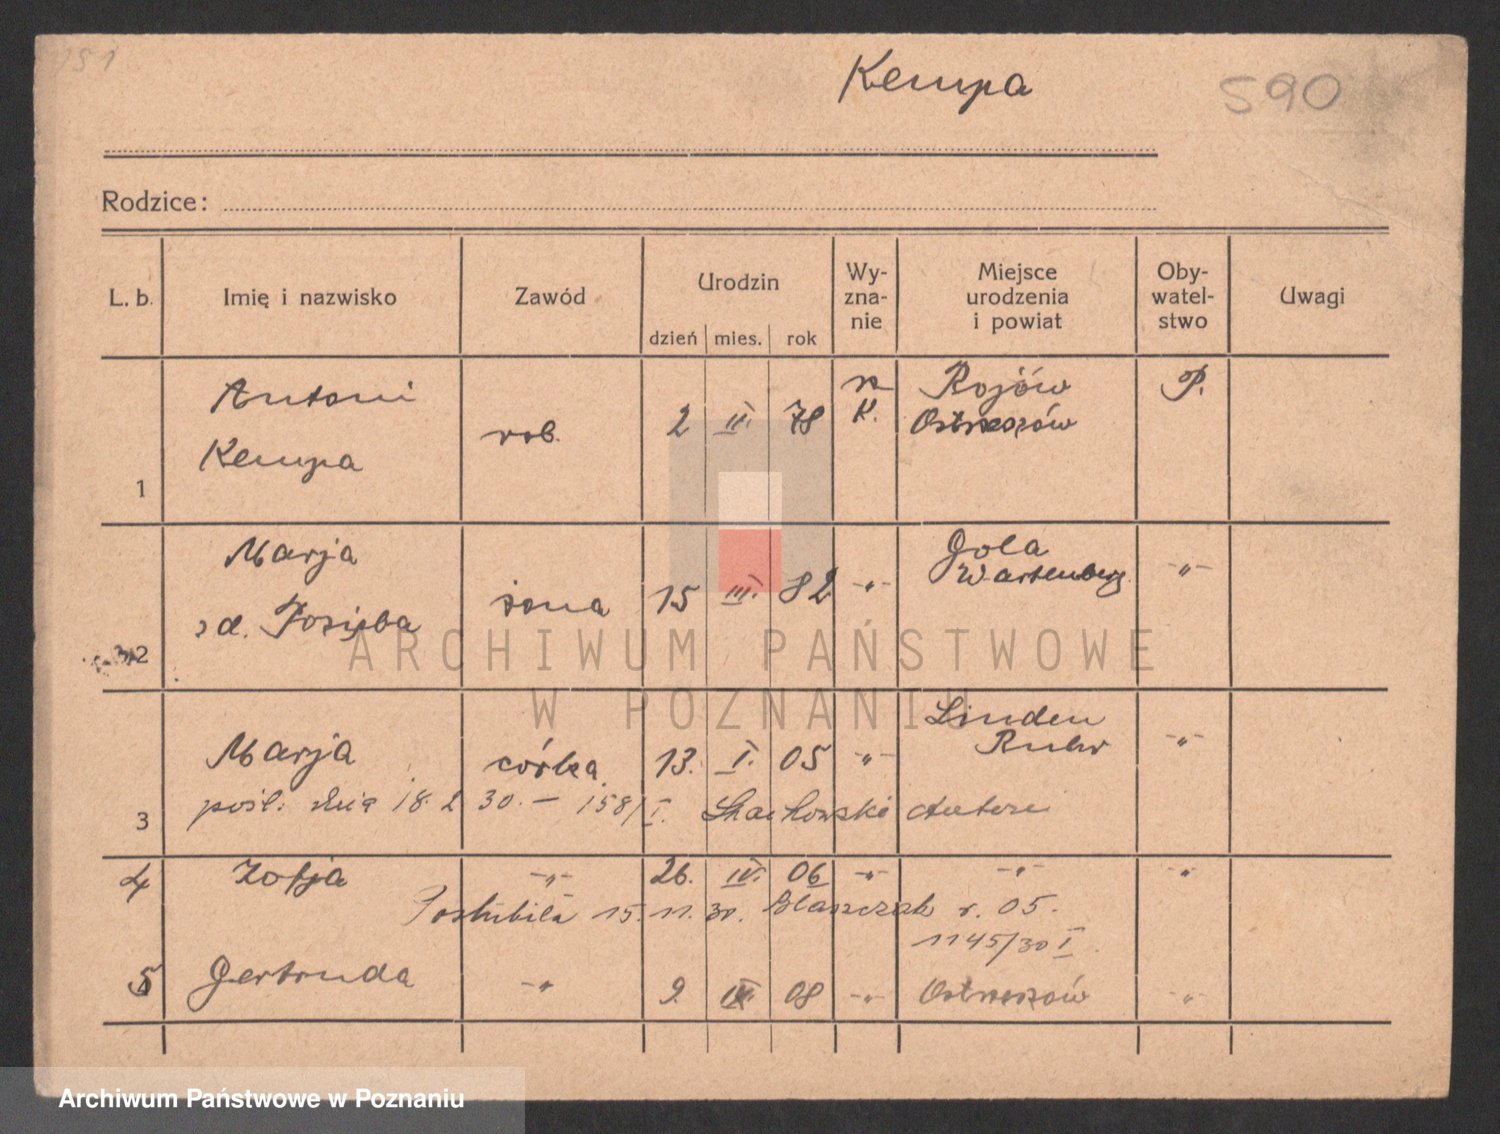 151
Kempa
590
Rodzice:
L. b. Imię i nazwisko Zawód Urodzin dzień mies. rok Wy-zna-nie Miejsce urodzenia i powiat Oby-watel-stwo Uwagi
Antoni rob. 2 II. 78 r. K. Rojów P.
Kempa Ostrzeszów
1
Marja żona 15 III. 82 -"- Gola -"-
zd. Posięba Wartenberg
2
Marja córka 13. I. 05 -"- Linden -"-
Ruhr
pośl. dnia 18. 2 30. — 158/I. Stachowski Antoni
3
4 Zofja -"- 26. IV. 06 -"- -"- -"-
Poślubiła 15. 11. 30. Błaszczak r. 05.
1145/30 I.
5 Gertruda -"- 9. IX. 08 -"- Ostrzeszów -"-
ARCHIWUM PAŃSTWOWE
W POZNANIU
Archiwum Państwowe w Poznaniu